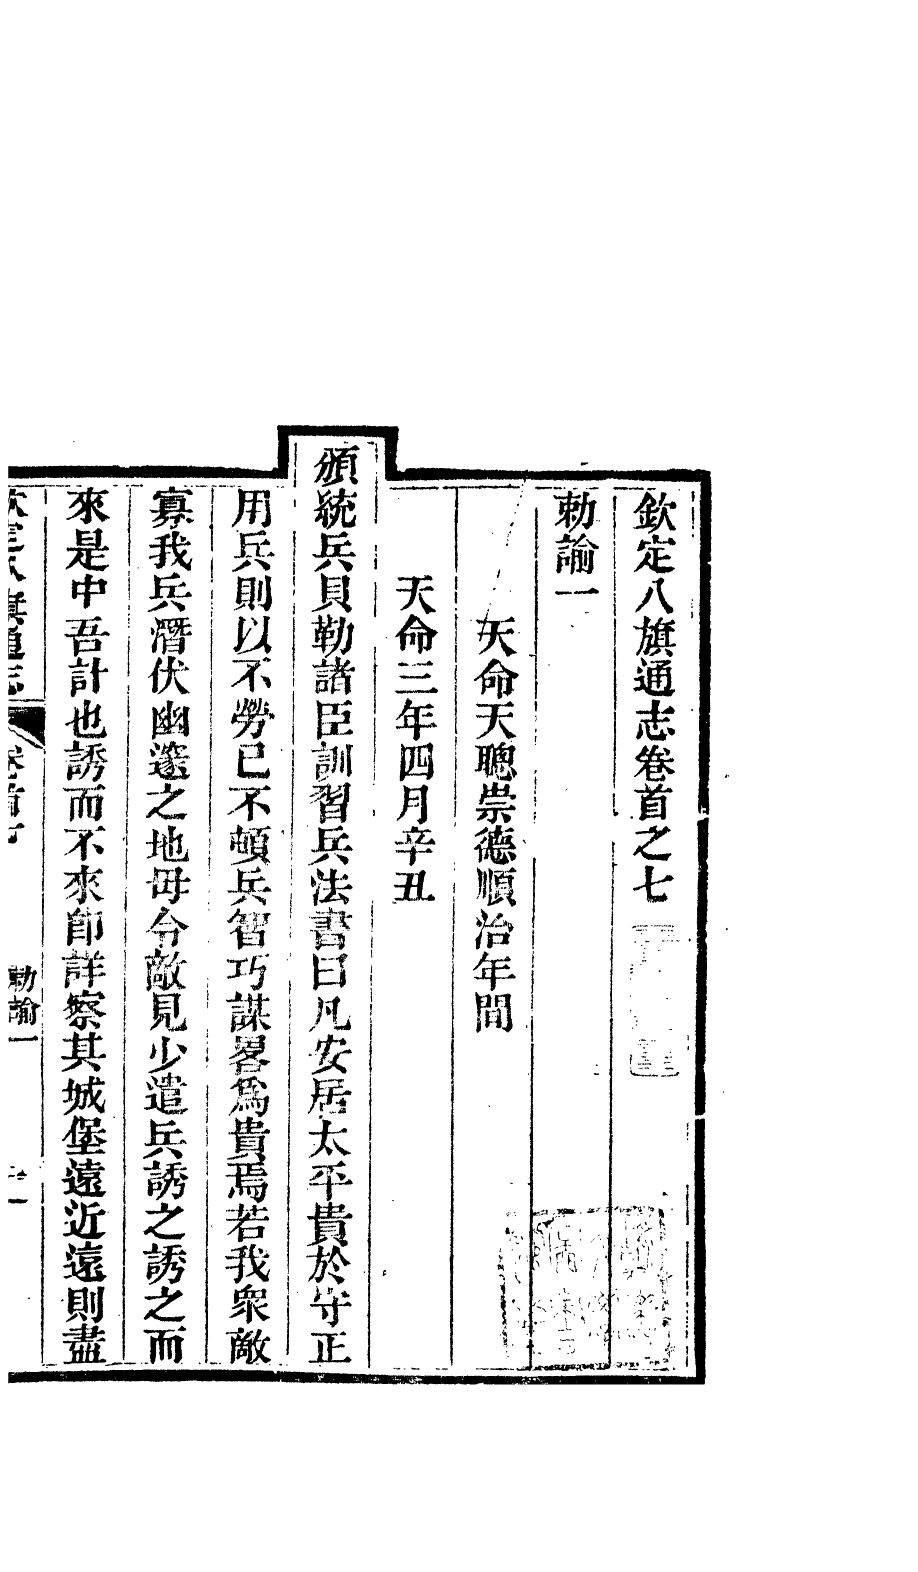 欽定八旗通志卷首之七
勅諭一
天命天聰崇德順治年間
天命三年四月辛丑
頒統兵貝勒諸臣訓習兵法書曰凡安居太平貴於守正
用兵則以不勞已不頓兵智巧謀畧爲貴焉若我衆敵
寡我兵潛伏幽邃之地毋令敵見少遣兵誘之誘之而
來是中吾計也誘而不來卽詳察其城堡遠近遠則盡
勅諭一